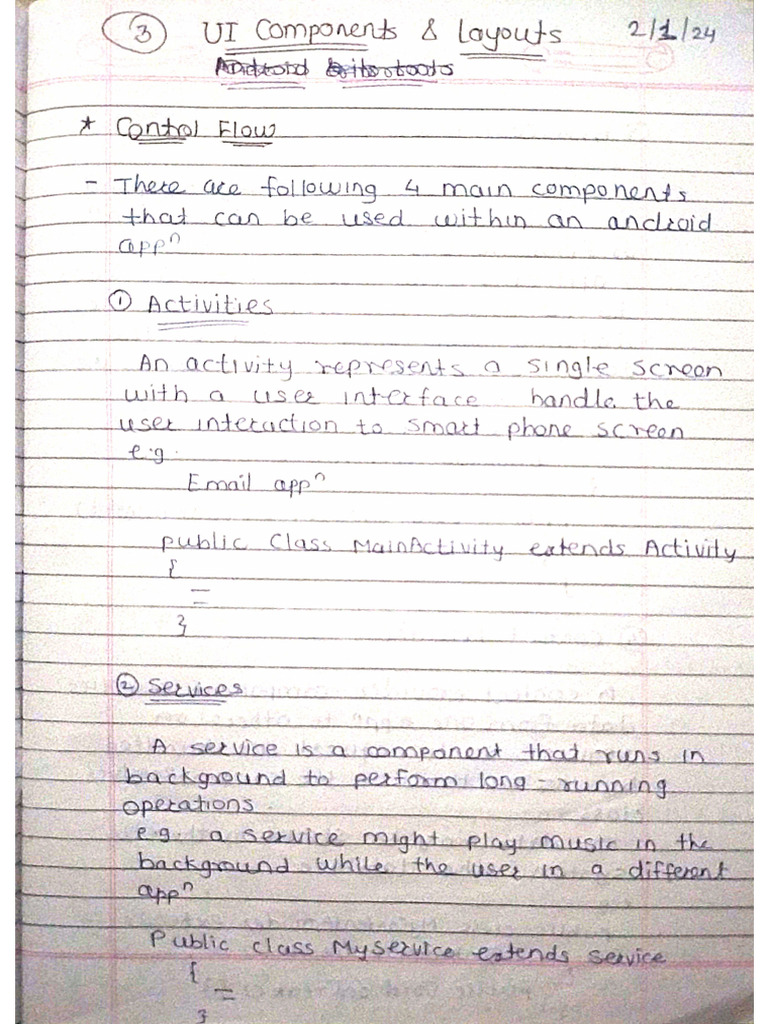 ③ UI Components & Layouts 2/1/24
* Control Flow
- There are following 4 main components
that can be used within an android
appⁿ
① Activities
An activity represents a single screen
with a user interface handle the
user interaction to smart phone screen
e.g.
Email appⁿ
public Class MainActivity extends Activity
{
=
}
② Services
A service is a component that runs in
background to perform long-running
operations.
e.g. a service might play music in the
background while the user in a different
appⁿ
Public class Myservice extends service
{
=
}